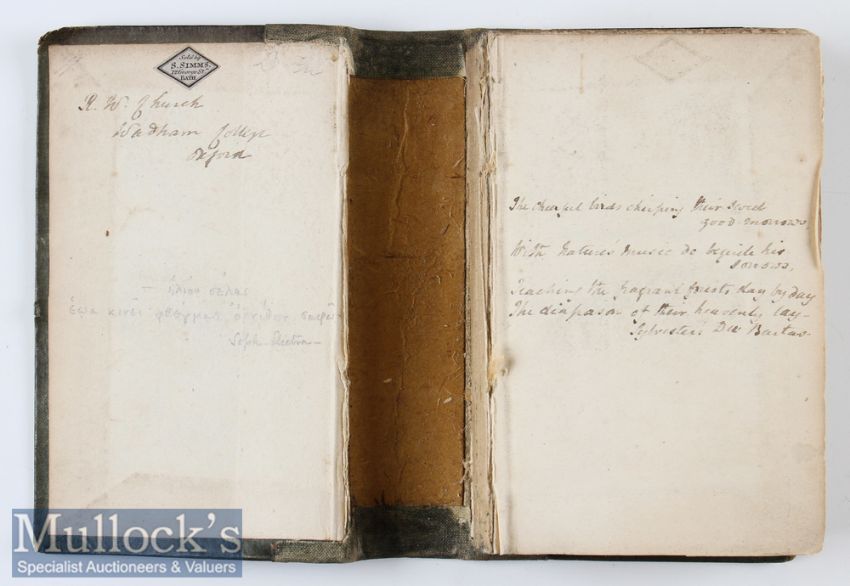 Sold by
S. SIMMS,
George St
BATH
R. W. Church
Wadham College
Oxford
ἡλίου σέλας
ἑῷα κινεῖ φθέγματ' ὀρνίθων σαφῆ
Soph. Electra—
The cheerful birds chirping their sweet
good-morrows,
With Nature's music do beguile his
sorrows,
Teaching the fragrant forests day by day
The diapason of their heavenly lay—
Sylvester's Du Bartas
Mullock's
Specialist Auctioneers & Valuers